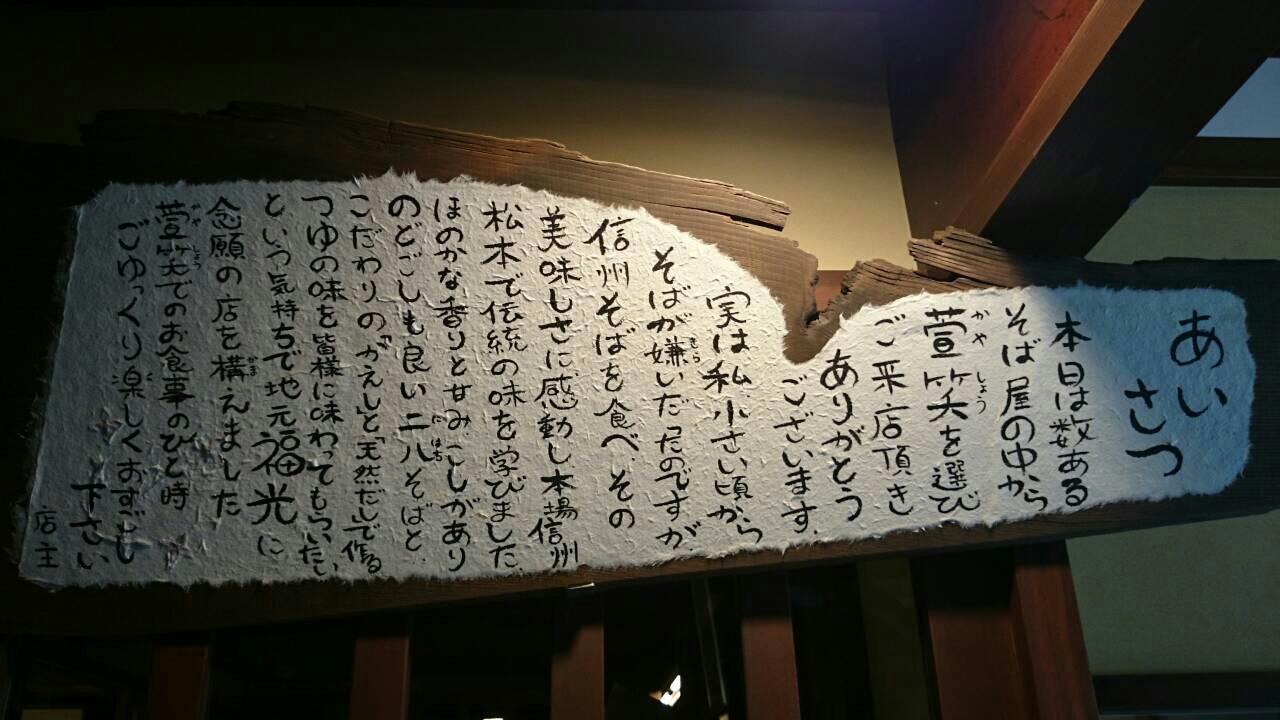 あいさつ
本日は数ある
そば屋の中から
萱笑を選び
ご来店頂き
ありがとう
ございます.
実は私小さい頃から
そばが嫌いだったのですが.
信州そばを食べその
美味しさに感動し本場信州
松本で伝統の味を学びました.
ほのかな香りと甘みこしがあり
のどごしも良い二八そばと.
こだわりの「かえし」と「天然だし」で作る
つゆの味を皆様に味わってもらいたい
という気持ちで地元福光に
念願の店を構えました
萱笑でのお食事のひと時
ごゆっくり楽しくおすごし
下さい
店主